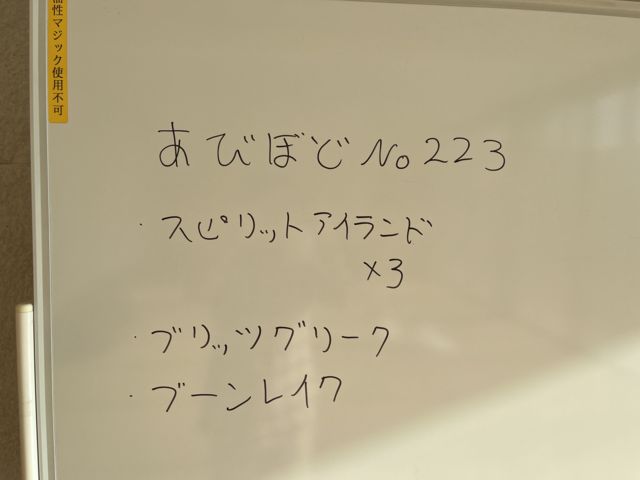 油性マジック使用不可
あびぼど No 223
・スピリットアイランド
×3
・ブリッツグリーク
・ブーンレイク